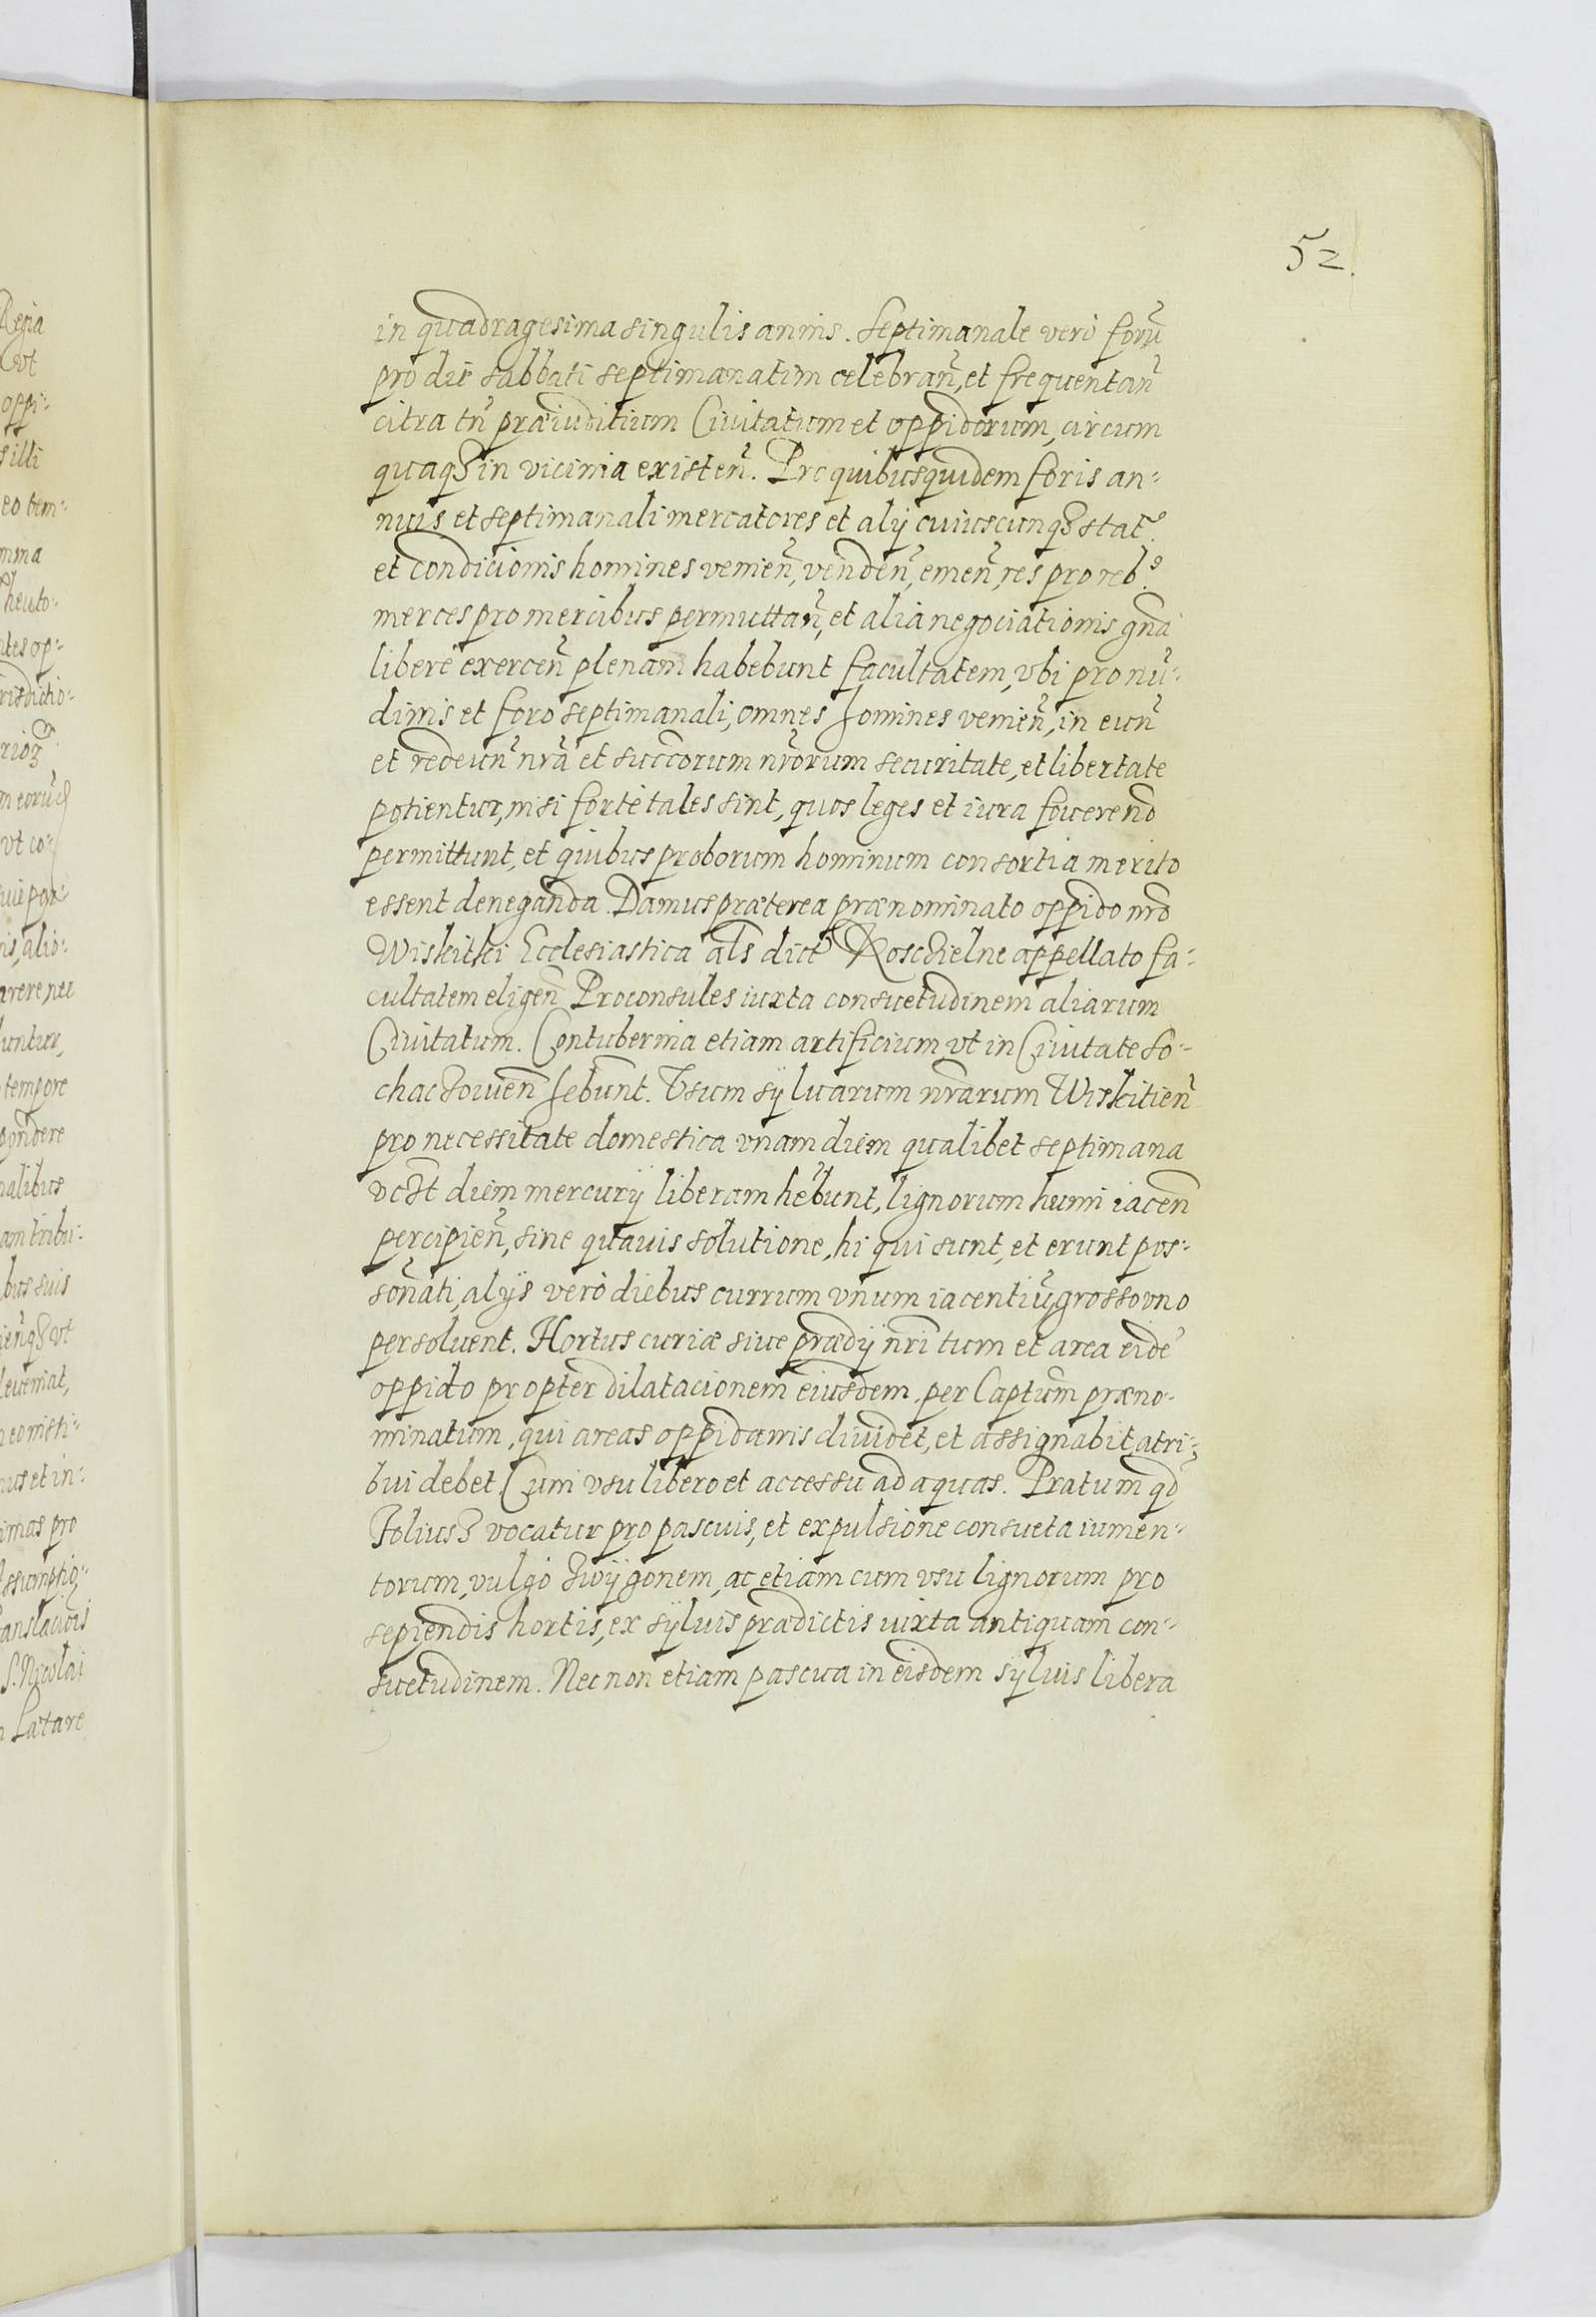 52.
in quadragesima singulis annis. Septimanale verò forũ
pro die sabbati septimanatim celebrañ, et frequentañ
citra tñ præiuditium Ciuitatum et oppidorum, circum
quaqȝ in vicinia existeñ. Pro quibusquidem foris an-
nuis et septimanali mercatores et alij cuiuscunqȝ stat⁹
et condicionis homines venieñ, vendeñ, emeñ, res pro reb⁹
merces pro mercibus permuttañ, et alia negociationis gña
liberè exerceñ plenam habebunt facultatem, vbi pro nũ-
dinis et foro septimanali, omnes homines venieñ, in euñ
et redeuñ nrã et succorum nrõrum securitate, et libertate
potientur, nisi fortè tales sint, quos leges et iura fouere nõ
permittunt, et quibus proborum hominum consortia merito
essent deneganda. Damus præterea prænominato oppido nrõ
Wiskitki Ecclesiastica als dict Kosczielne appellato fa-
cultatem eligeñ Proconsules iuxta consuetudinem aliarum
Ciuitatum. Contubernia etiam artificium vt in Ciuitate So-
chaczouieñ hebunt. Vsum sÿluarum nrãrum Wiskitieñ
pro necessitate domestica vnam diem qualibet septimana
vczt diem mercurÿ liberam hẽbunt, lignorum humi iaceñ
percipieñ, sine quauis solutione, hi qui sunt, et erunt pos-
soñati, alÿs verò diebus currum vnum iacentiũ, grosso vno
persoluent. Hortus curiæ siue prædÿ nrĩ tum et area eidẽ
oppido propter dilatacionem eiusdem per Captum præno-
minatum, qui areas oppidanis diuidet, et assignabit, atri-
bui debet. Cum vsu libero et accessu ad aquas. Pratum qđ
Foliusz vocatur pro pascuis, et expulsione consueta iumen-
torum, vulgò zwÿgonem, ac etiam cum vsu lignorum pro
sepiendis hortis, ex sÿluis prædictis iuxta antiquam con-
suetudinem. Nec non etiam pascua in eisdem sÿluis libera